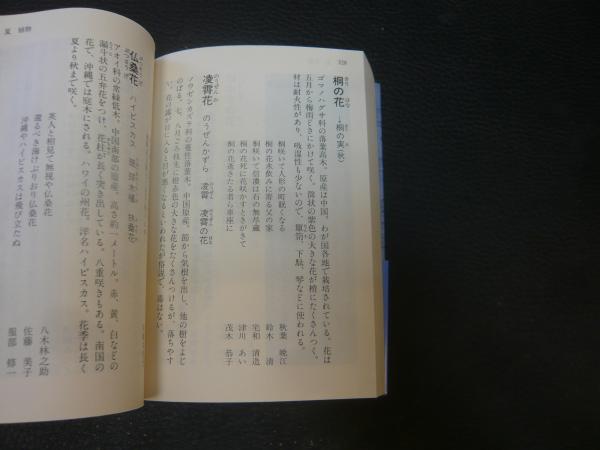 328
桐の花 →桐の実(秋)
ゴマノハグサ科の落葉高木。原産は中国。わが国各地で栽培されている。花は
五月から梅雨どきにかけて咲く。筒状の紫色の大きな花が梢にたくさんつく。
材は耐火性があり、吸湿性も少ないので、簞笥、下駄、琴などに使われる。
桐咲いて人形の町眠くなる 秋葉 晩江
桐の花水飲みに寄る父の家 鈴木 清
桐咲いて信濃は石の無尽蔵 宅和 清造
桐の花死に花咲かすときがきて 津川 あい
桐の花過ぎたる君ら車座に 茂木 恭子
凌霄花 のうぜんかずら 凌霄 凌霄の花
ノウゼンカズラ科の蔓性落葉木。中国原産。節から気根を出し、他の樹をよじ
のぼる。七、八月ごろ枝先に橙赤色の大きな花をたくさんつけるが、落ちやす
い。花の露が目に入ると目が悪くなるといわれたが俗説で、毒はない。
夏 植物
仏桑花 ハイビスカス 琉球木槿 扶桑花
アオイ科の常緑低木。中国南部の原産。高さ約一メートル。赤、黄、白などの
漏斗状の五弁花をつけ、花柱が長く突き出している。八重咲きもある。南国の
花で、沖縄では庭木にされる。ハワイの州花。洋名ハイビスカス。花季は長く
夏より秋まで咲く。
美人と相見て無視や仏桑花 八木林之助
還るべき海けぶりおり仏桑花 佐藤 美子
沖縄やハイビスカスは飛び立たぬ 服部 修一